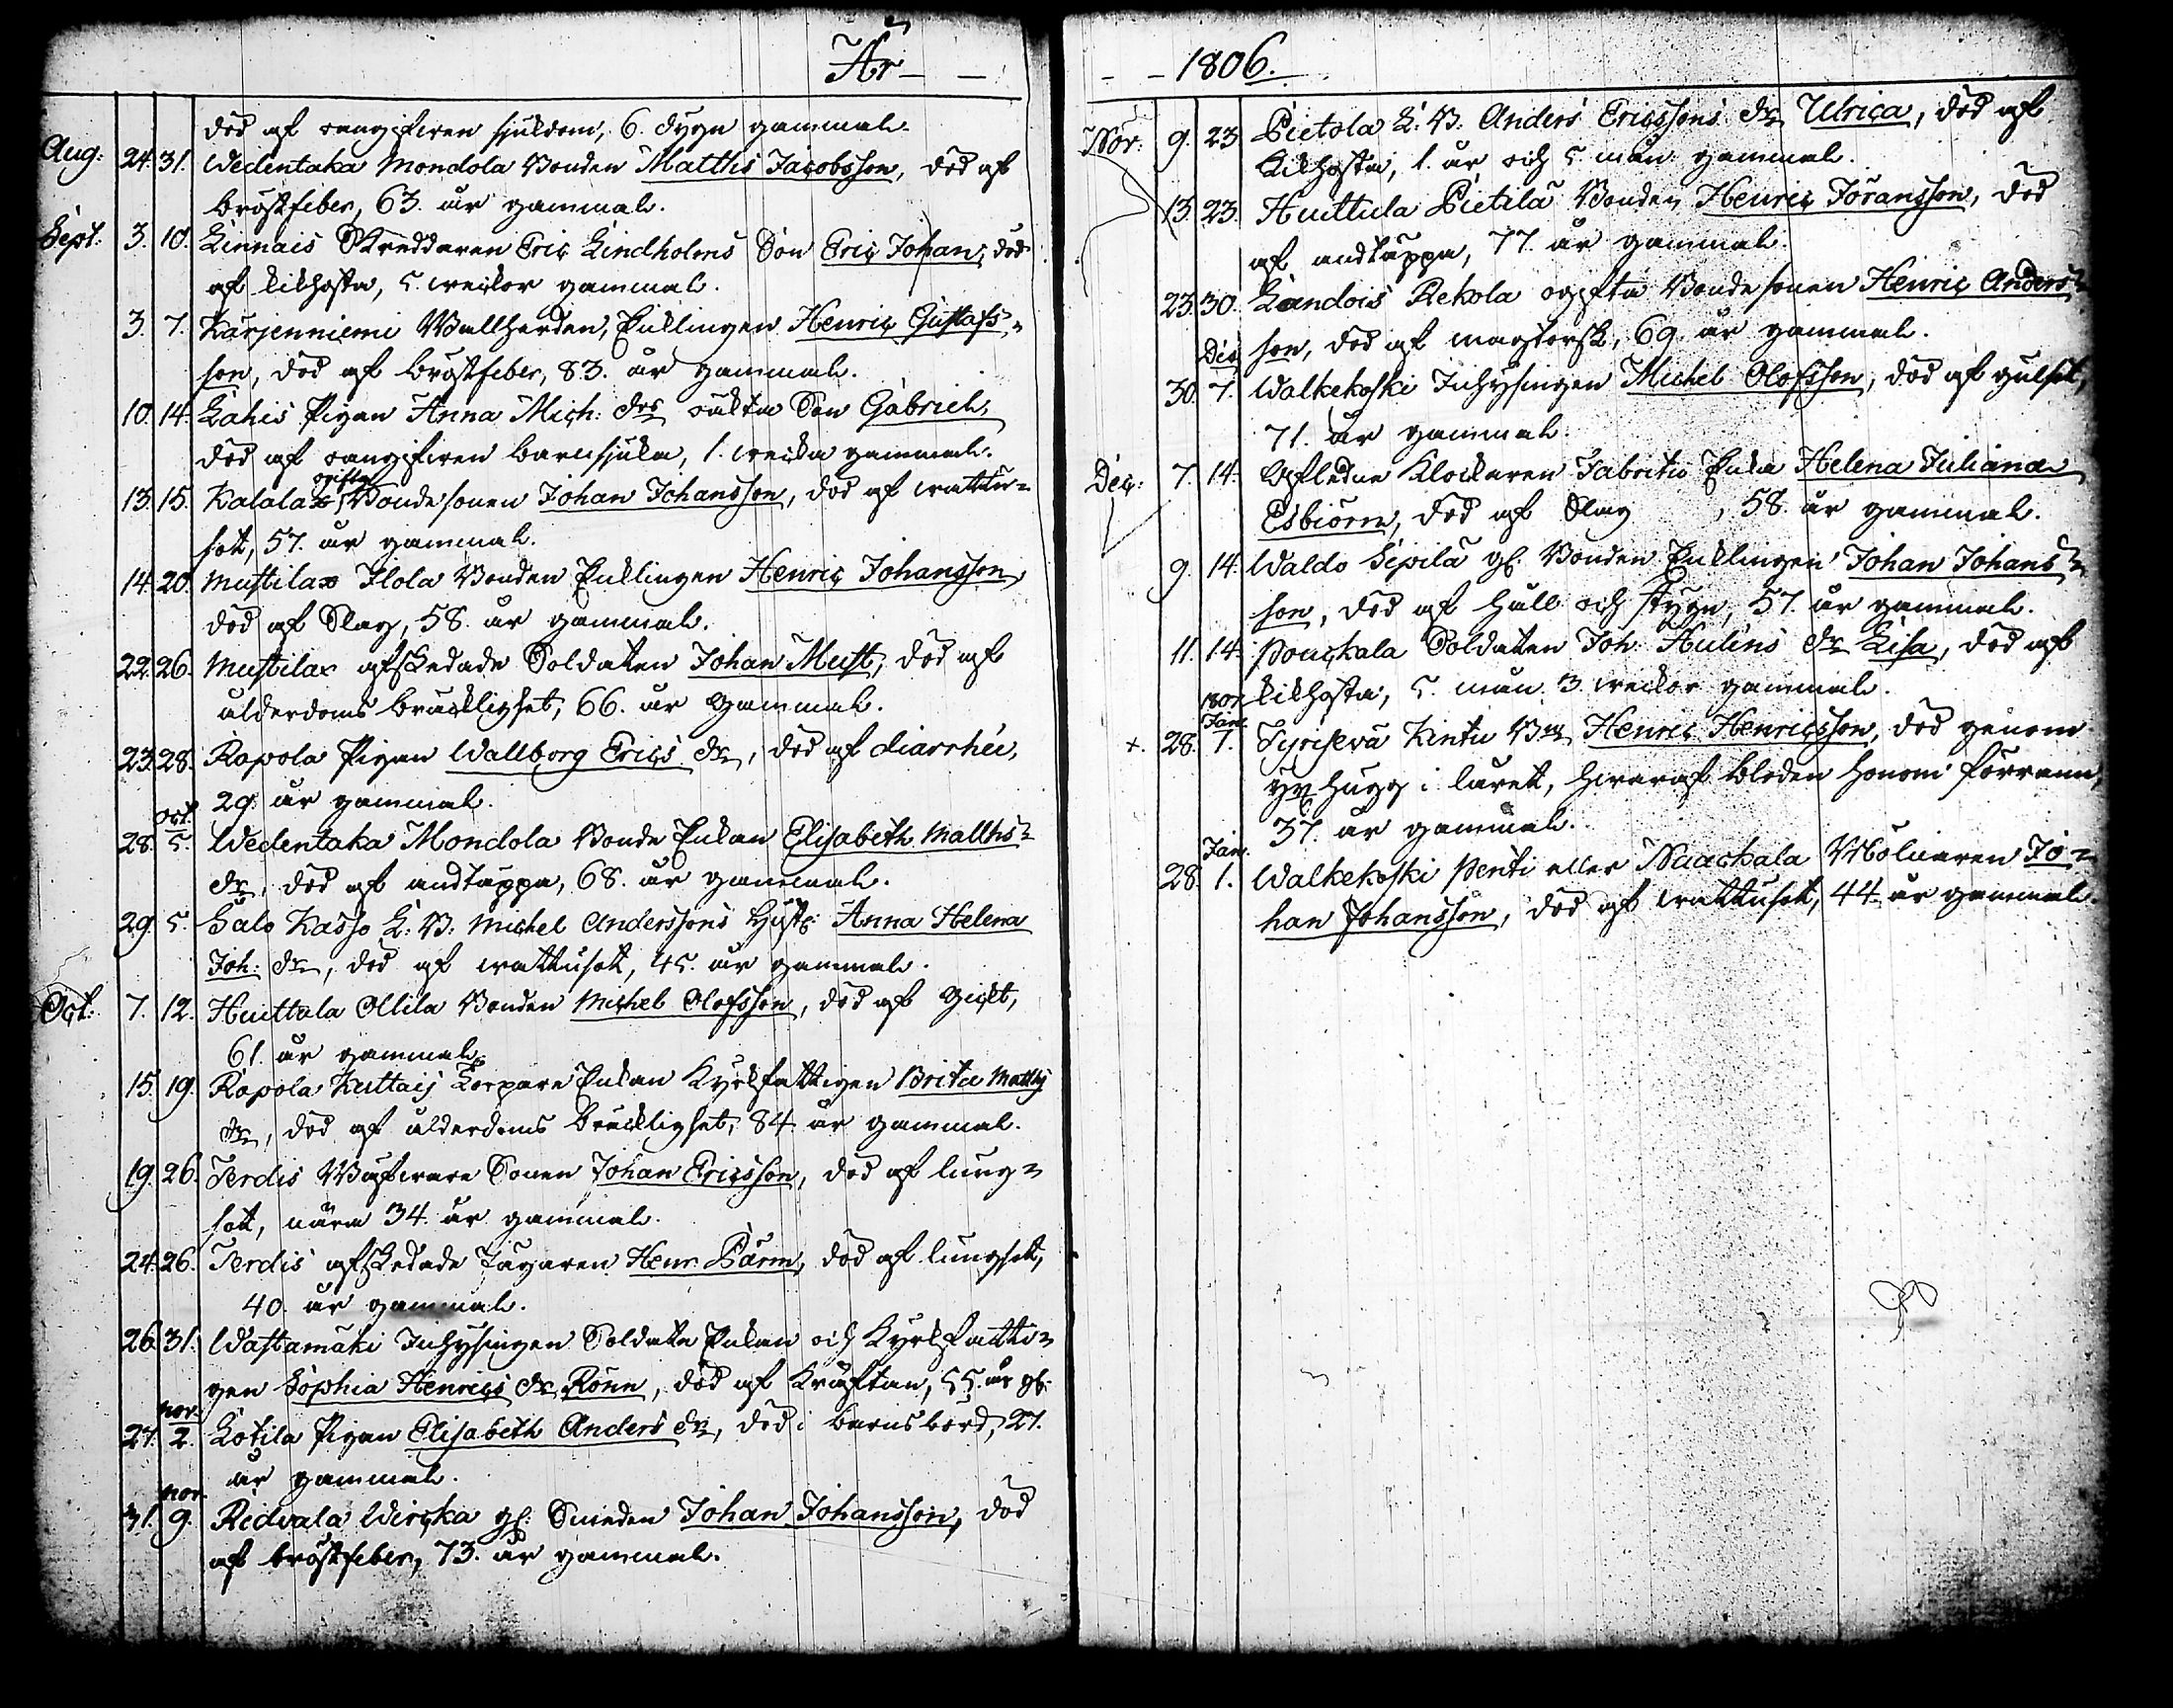 År - - - - 1806.
död af oangifwen sjukdom, 6. dygn gammal.
Aug: 24. 31. Wedentaka Mondola Bonden Matths Jacobsson, död af
bröstfeber, 63. år gammal.
Sept: 3. 10. Linnais Skreddaren Eric Lindholms Son Eric Johan, död
af kikhosta, 5. weckor gammal.
3. 7. Karjenniemi Wallherden, Enklingen Henric Gustafs-
son, död af bröstfeber, 83. år gammal.
10. 14. Lahis Pigan Anna Mich: dr oäkta Son Gabriel,
död af oangifwen barnsjuka, 1. wecka gammal.
ogifta
13. 15. Kalala Bondesonen Johan Johansson, död af wattu-
sot, 57. år gammal.
14. 20. Mustila Ilola Bonden Enklingen Henric Johansson,
död af Slag, 58. år gammal.
22. 26. Mustila afskedade Soldaten Johan Must, död af
ålderdoms bräcklighet, 66. år gammal.
23. 28. Rapola Pigan Wallborg Erics dr, död af diarrhée,
29. år gammal.
oct.
28. 5. Wedentaka Mondola Bonde Enkan Elisabeth Matths-
dr, död af andtäppa, 68. år gammal.
29. 5. Salo Kasso L: B: Michel Anderssons Hustr: Anna Helena
Joh: dr, död af wattusot, 45. år gammal.
Oct: 7. 12. Huittula Ollila Bonden Michel Olofsson, död af Gickt,
61. år gammal.
15. 19. Rapola Kuttais Torpare Enkan Kyrkfattigen Brita Matths
dr, död af ålderdoms bräcklighet, 84. år gammal.
19. 26. Terdis Sonen Johan Ericsson, död af lung-
sot, nära 34. år gammal.
24. 26. Terdis afskedade Jägaren Henr. Pärm, död af lungsot,
40. år gammal.
26. 31. Wastamäki Inhysingen Soldate Enkan och Kyrkfatti-
gen Sophia Henrics dr Rönn, död af Kräftan, 55. år gl:
nov.
27. 2. Lotila Pigan Elisabeth Anders dr, död i barnsbörd, 27.
år gammal.
nov.
31. 9. Ridvala Wircka gl: Smeden Johan Johansson, död
af bröstfeber, 73. år gammal.
Nov: 9. 23. Pietola L: B: Anders Ericssons dr Ulrica, död af
Kikhosta, 1. år och 5. mån: gammal.
13. 23. Huittula Pietilä Bonden Henric Jöransson, död
af andtäppa, 77. år gammal.
23. 30. Landois Rekola ogifta Bondesonen Henric Anders-
son, död af magtorsk, 69. år gammal.
Dec
30. 7. Walkekoski Inhysingen Michel Olofsson, död af gulsot,
71. år gammal.
Dec: 7. 14. Afledne Klockaren Fabritii Enka Helena Juliana
Esbiörn, död af Slag, 58. år gammal.
9. 14. Waldo Sepilä gl: Bonden Enklingen Johan Johans-
son, död af håll och styng, 57. år gammal.
11. 14. Pouckala Soldaten Joh: Hulins dr Lisa, död af
kikhosta, 5. mån. 3. weckor gammal.
1807
Jan.
+. 28. 1. Tyrisevä Kintu Henric Henricsson, död genom
yxhugg i låret, hwaraf bloden honom förrann,
37. år gammal.
Jan.
28. 1. Walkekoski Penti eller Naackala Mölnaren Jo-
han Johansson, död af wattusot, 44. år gammal.